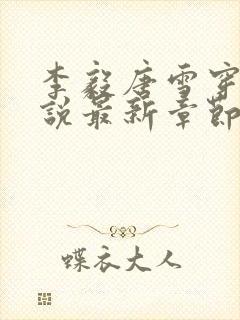 李毅唐雪穿
说最新章节
蝶衣大人